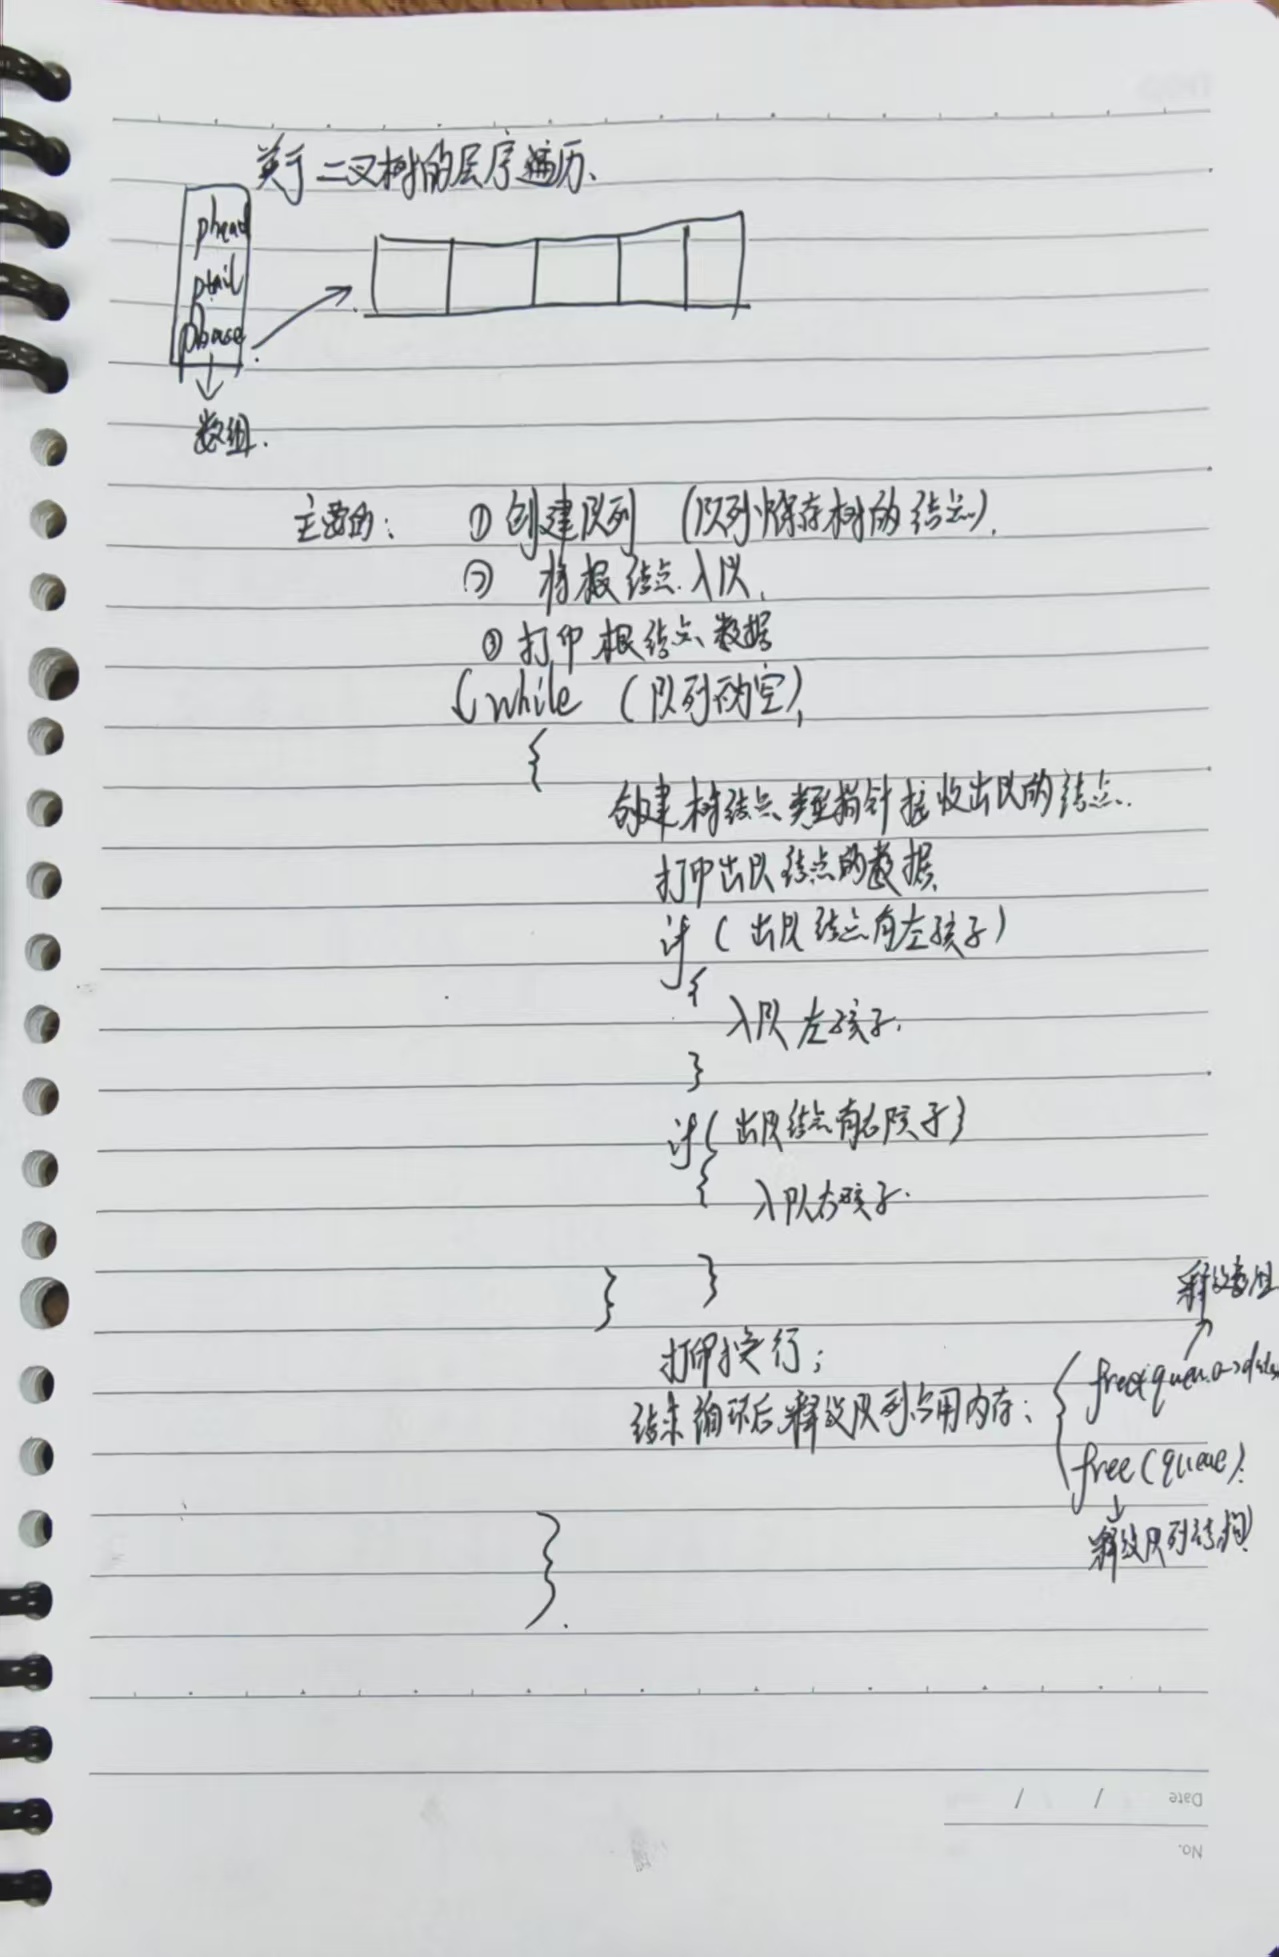 关于二叉树的层序遍历、
phead
ptail
pbase
数组.
主要的: ① 创建队列 (队列保存树的结点).
② 将根结点入队.
③ 打印根结点数据
while (队列不为空)
{
创建树结点类型指针接收出队的结点.
打印出队结点的数据
if (出队结点有左孩子)
{
入队左孩子.
}
if (出队结点有右孩子)
{
入队右孩子.
}
}
释放数组
打印换行;
free(queue->data
结束循环后释放队列占用内存: {
free(queue);
释放队列结构
}.
Date / /
No.